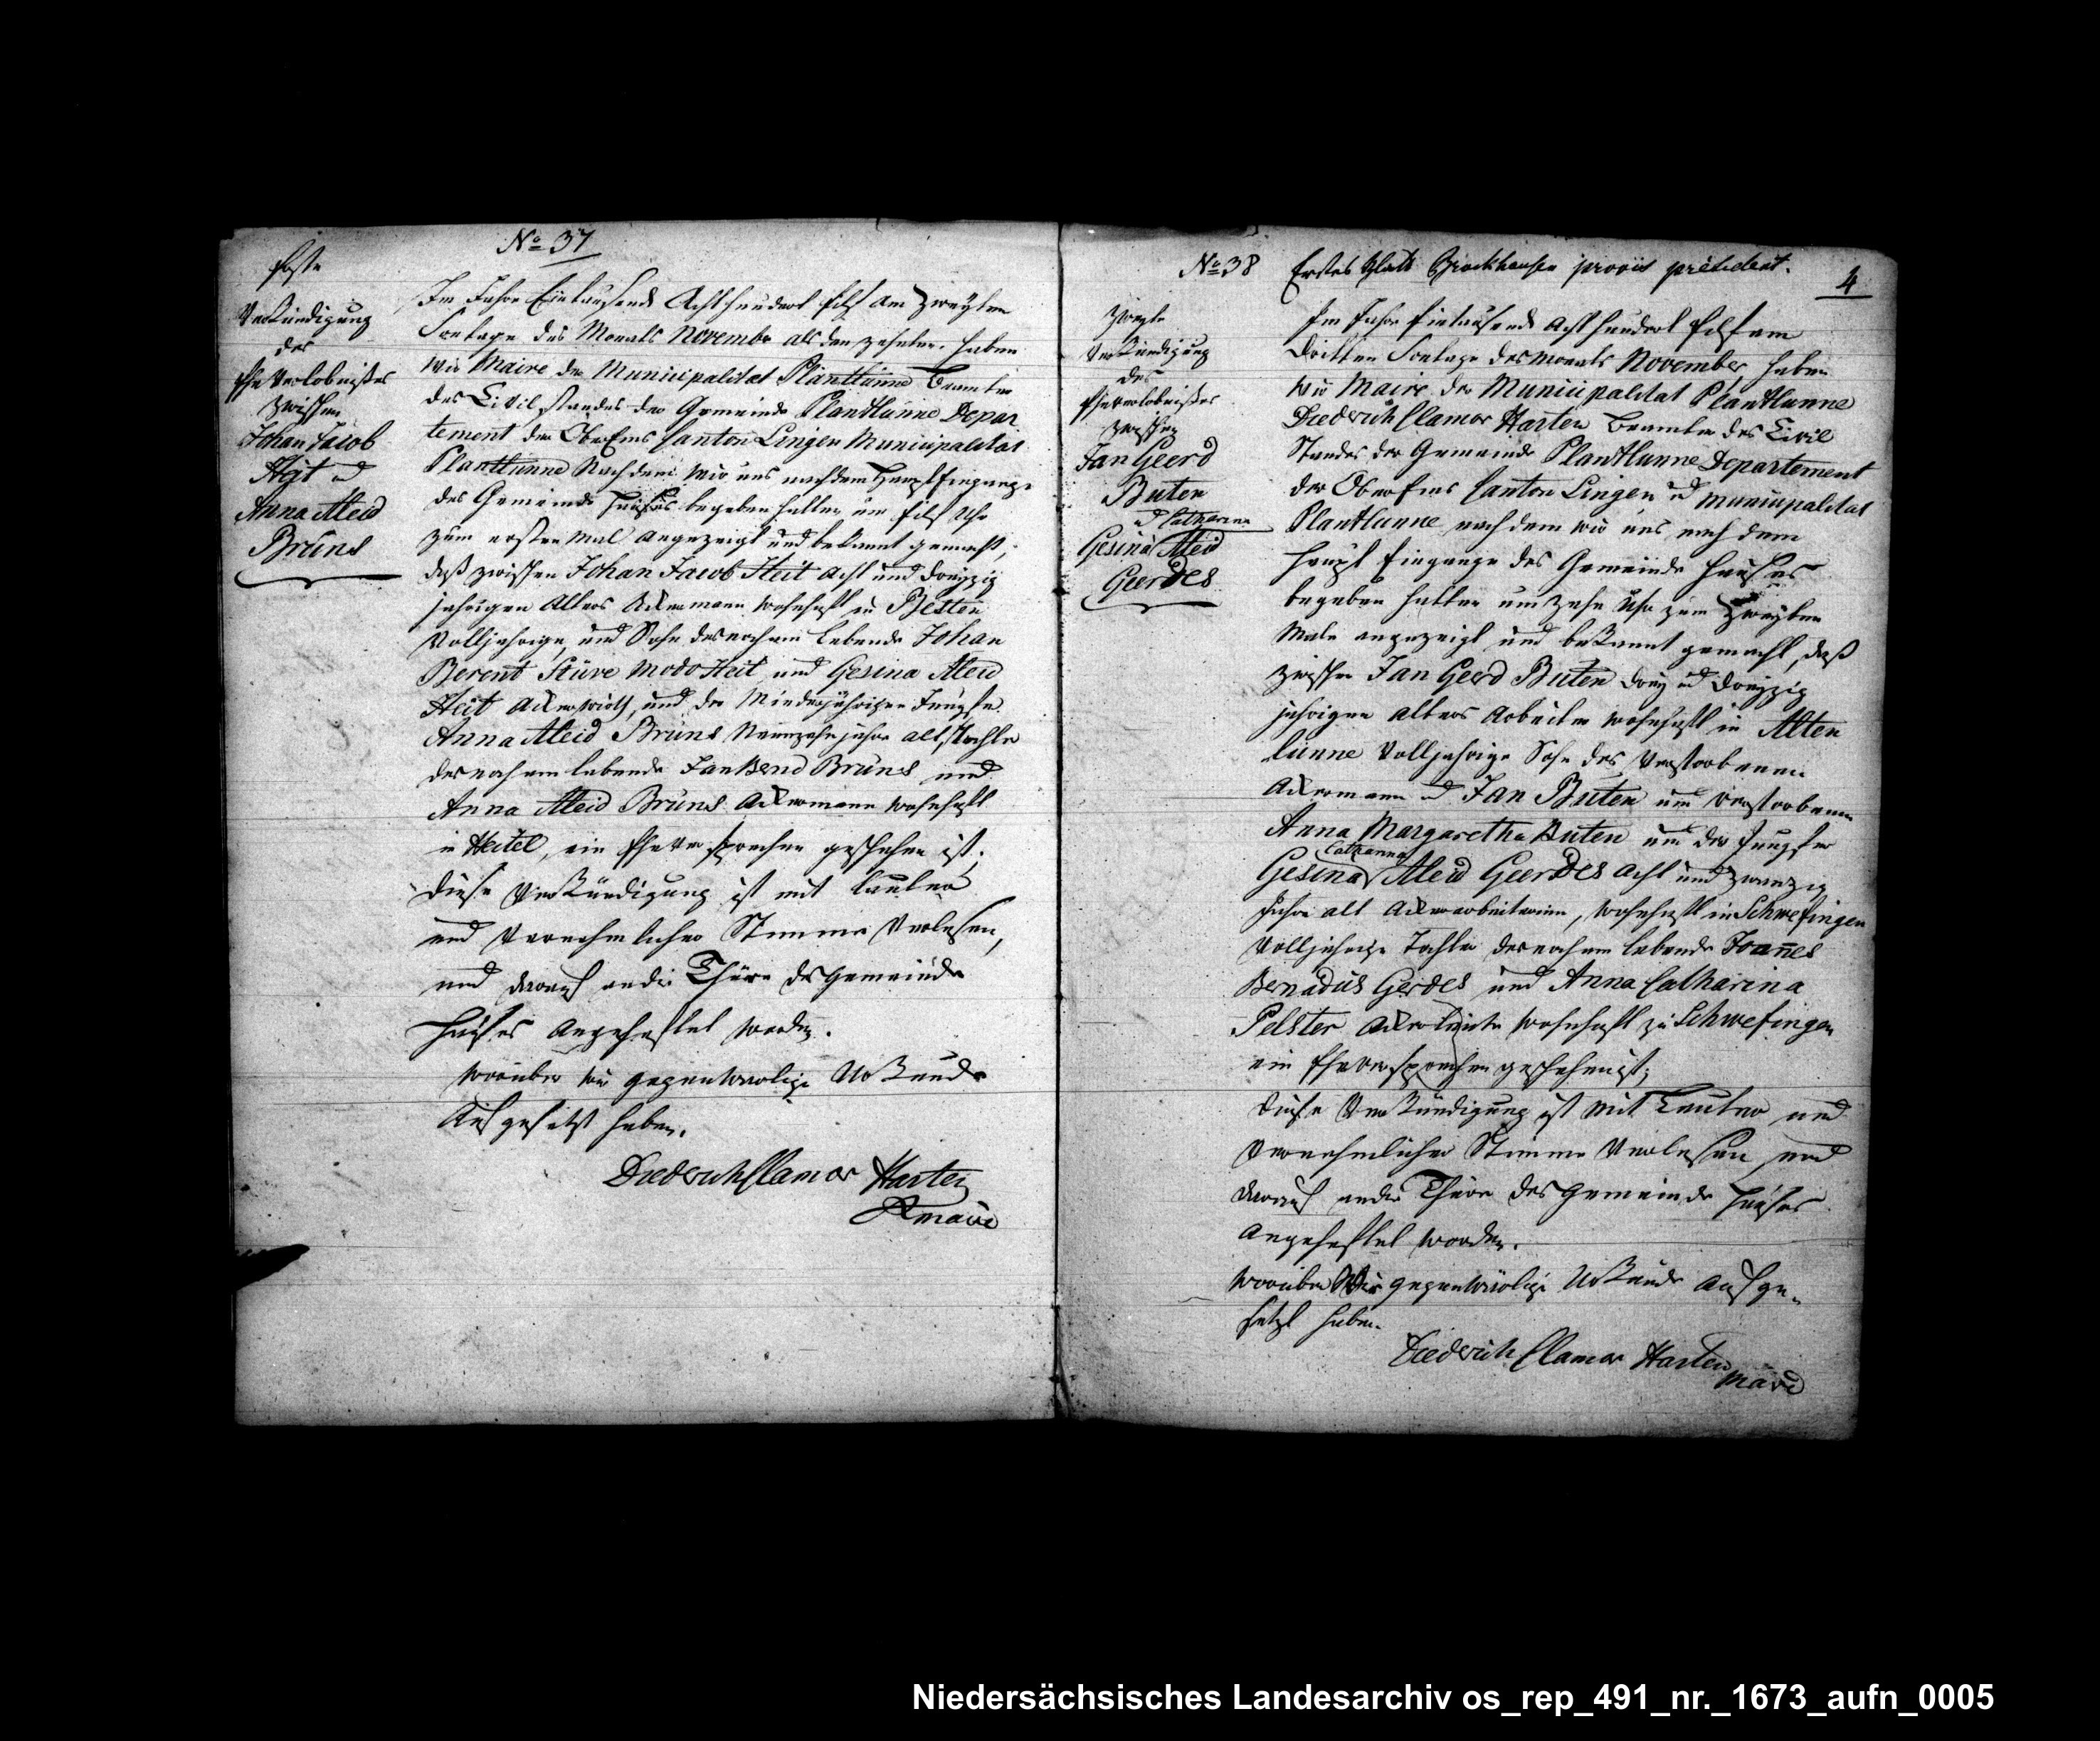 No 37
Erste
Verkündigung
des
Ehe Verlobnißes
zwischen
Johan Jacob
Heit u
Anna Aleid
Brüns
Im Jahre Eintausend Achthundert Eilf am zweyten
Sontage des Monats November als den zehnten haben
Wir Maire der Municipalitat Plantlünne Beamter
des Civilstandes der Gemeinde Plantlünne Depar
tement der OberEms Canton Lingen Municipalitat
Plantlünne Nachdem wir uns nach dem Haupt Eingange
des Gemeinde Hauses begeben hatten um Eilf Uhr
zum ersten Mal angezeigt und bekannt gemacht,
daß zwischen Johan Jacob Heit acht und dreyzig
jahrigen Alters Ackermann wohnhaft in Besten
Volljahrige, und Sohn des noch am Lebende Johan
Berent Stüve modo Heit und Gesina Aleid
Heit Ackerwirth, und der Minderjährigen Jungfer
Anna Aleid Brüns Neunzehn jahre alt, Tochter
des noch am lebende Jan Bernd Brüns und
Anna Aleid Brüns Ackermann wohnhaft
in Heitel, ein Eheversprechen geschehen ist.
Diese Verkündigung ist mit lauter
und Vernehmlicher Stimme Verlesen,
und darauf an die Thüre des Gemeinde
Hauses Angeheftet worden.
Worüber wir gegenwärtige Urkunde
Aufgesetzt haben.
Diederich Clamor Harten
Maire
No 38 Erstes Blatt Brockhausen provis président.
4
Zweyte
Verkündigung
des
Eheverlobnißes
zwischen
Jan Geerd
Buten
u Catharina
Gesina Aleid
Geerdes
Im Jahre Eintausend Acht hundert Eilf am
Dritten Sontage des Monats November haben
Wir Maire der Municipalitat Plantlunne
Diederich Clamor Harten Beamter des Civil
Standes der Gemeinde Plantlunne Departement
der OberEms Canton Lingen u Municipalitat
Plantlunne nach dem wir uns nach dem
Haupt Eingange des Gemeinde Hauses
begeben hatten um Zehn Uhr zum Zweyten
Male angezeigt und bekannt gemacht, daß
zwischen Jan Geerd Buten drey u dreyzig
jahrigen Alters Arbeiter wohnhaft in Alten
lünne Volljahrige Sohn des Verstorbenen
Ackermann u Jan Buten und Verstorbenen
Anna Margaretha Buten und der Jungfer
Catharina
Gesina Aleid Geerdes acht und zwanzig
Jahre alt Ackerarbeiterinn, wohnhaft in Schwefingen
Volljahrige Tochter des noch am lebende Joannes
Bernadus Gerdes und Anna Catharina
Pelster Ackerleute wohnhaft zu Schwefingen
ein Eheversprechen geschehen ist;
Diese Verkündigung ist mit Lauter und
Vernehmlicher Stimme Verlesen und
darauf an die Thüre des Gemeinde Hauses
Angeheftet worden.
Worüber Wir gegenwärtige Urkunde aufge-
setzt haben.
Diederich Clamor Harten
Maire
Niedersächsisches Landesarchiv os_rep_491_nr._1673_aufn_0005